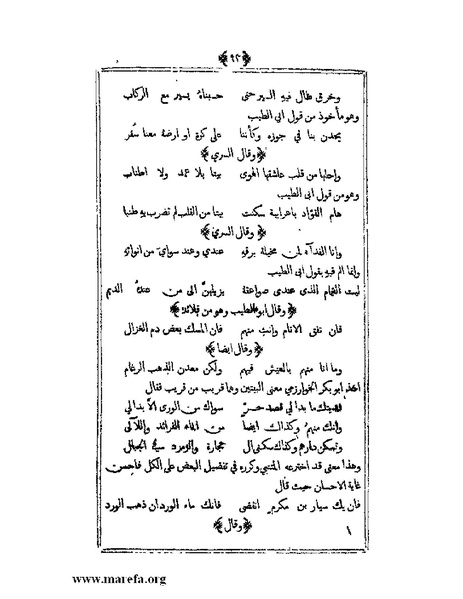 ﴿٩٢﴾
وخرق طال فيه السير حتى حسبناه يسير مع الركاب
وهو مأخوذ من قول ابى الطيب
يخدن بنا في جوزه وكأننا على كرة او ارضه معنا سفر
﴿وقال السري﴾
واحلها من قلب عاشقها الهوى بيتا بلا عمد ولا اطناب
وهو من قول ابى الطيب
هام الفؤاد باعرابية سكنت بيتا من القلب لم تضرب به طنبا
﴿وقال السري﴾
وانا الفداء لمن مخيلة برقه عندي وعند سواي من انوائه
وانما الم فيه بقول ابى الطيب
ليت الغمام الذى عندى صواعقة يزيلهن الى من عنده الديم
﴿وقال ابو الطيب وهو من قلائده﴾
فان تفق الانام وانت منهم فان المسك بعض دم الغزال
﴿وقال ايضا﴾
وما انا منهم بالعيش فيهم ولكن معدن الذهب الرغام
اخذ ابو بكر الخوارزمي معنى البيتين وهما قريب من قريب فقال
فديتك ما بدا لي قصد حر سواك من الورى الا بدا لي
وانك منهم وكذاك ايضا من الماء الفرائد واللآلى
وتسكن دارهم وكذاك سكنى ال حجارة والزمرد في الجبال
وهذا معنى قد اخترعه المتنبي وكرره في تفضيل البعض على الكل فاحسن
غاية الاحسان حيث قال
فان يك سيار بن مكرم انقضى فانك ماء الورد ان ذهب الورد
﴿وقال﴾
www.marefa.org